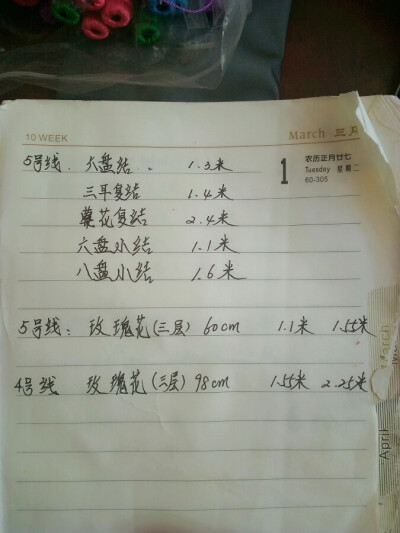 10 WEEK
March 三月
5号线. 大盘结. 1.3米
1
农历正月廿七
Tuesday 星期二
60-305
三耳复结 1.4米
花复结 2.4米
六盘小结 1.1米
八盘小结 1.6米
5号线: 玫瑰花(三层) 60cm 1.1米 1.55米
4号线 玫瑰花(三层) 98cm 1.55米 2.25米
March
April